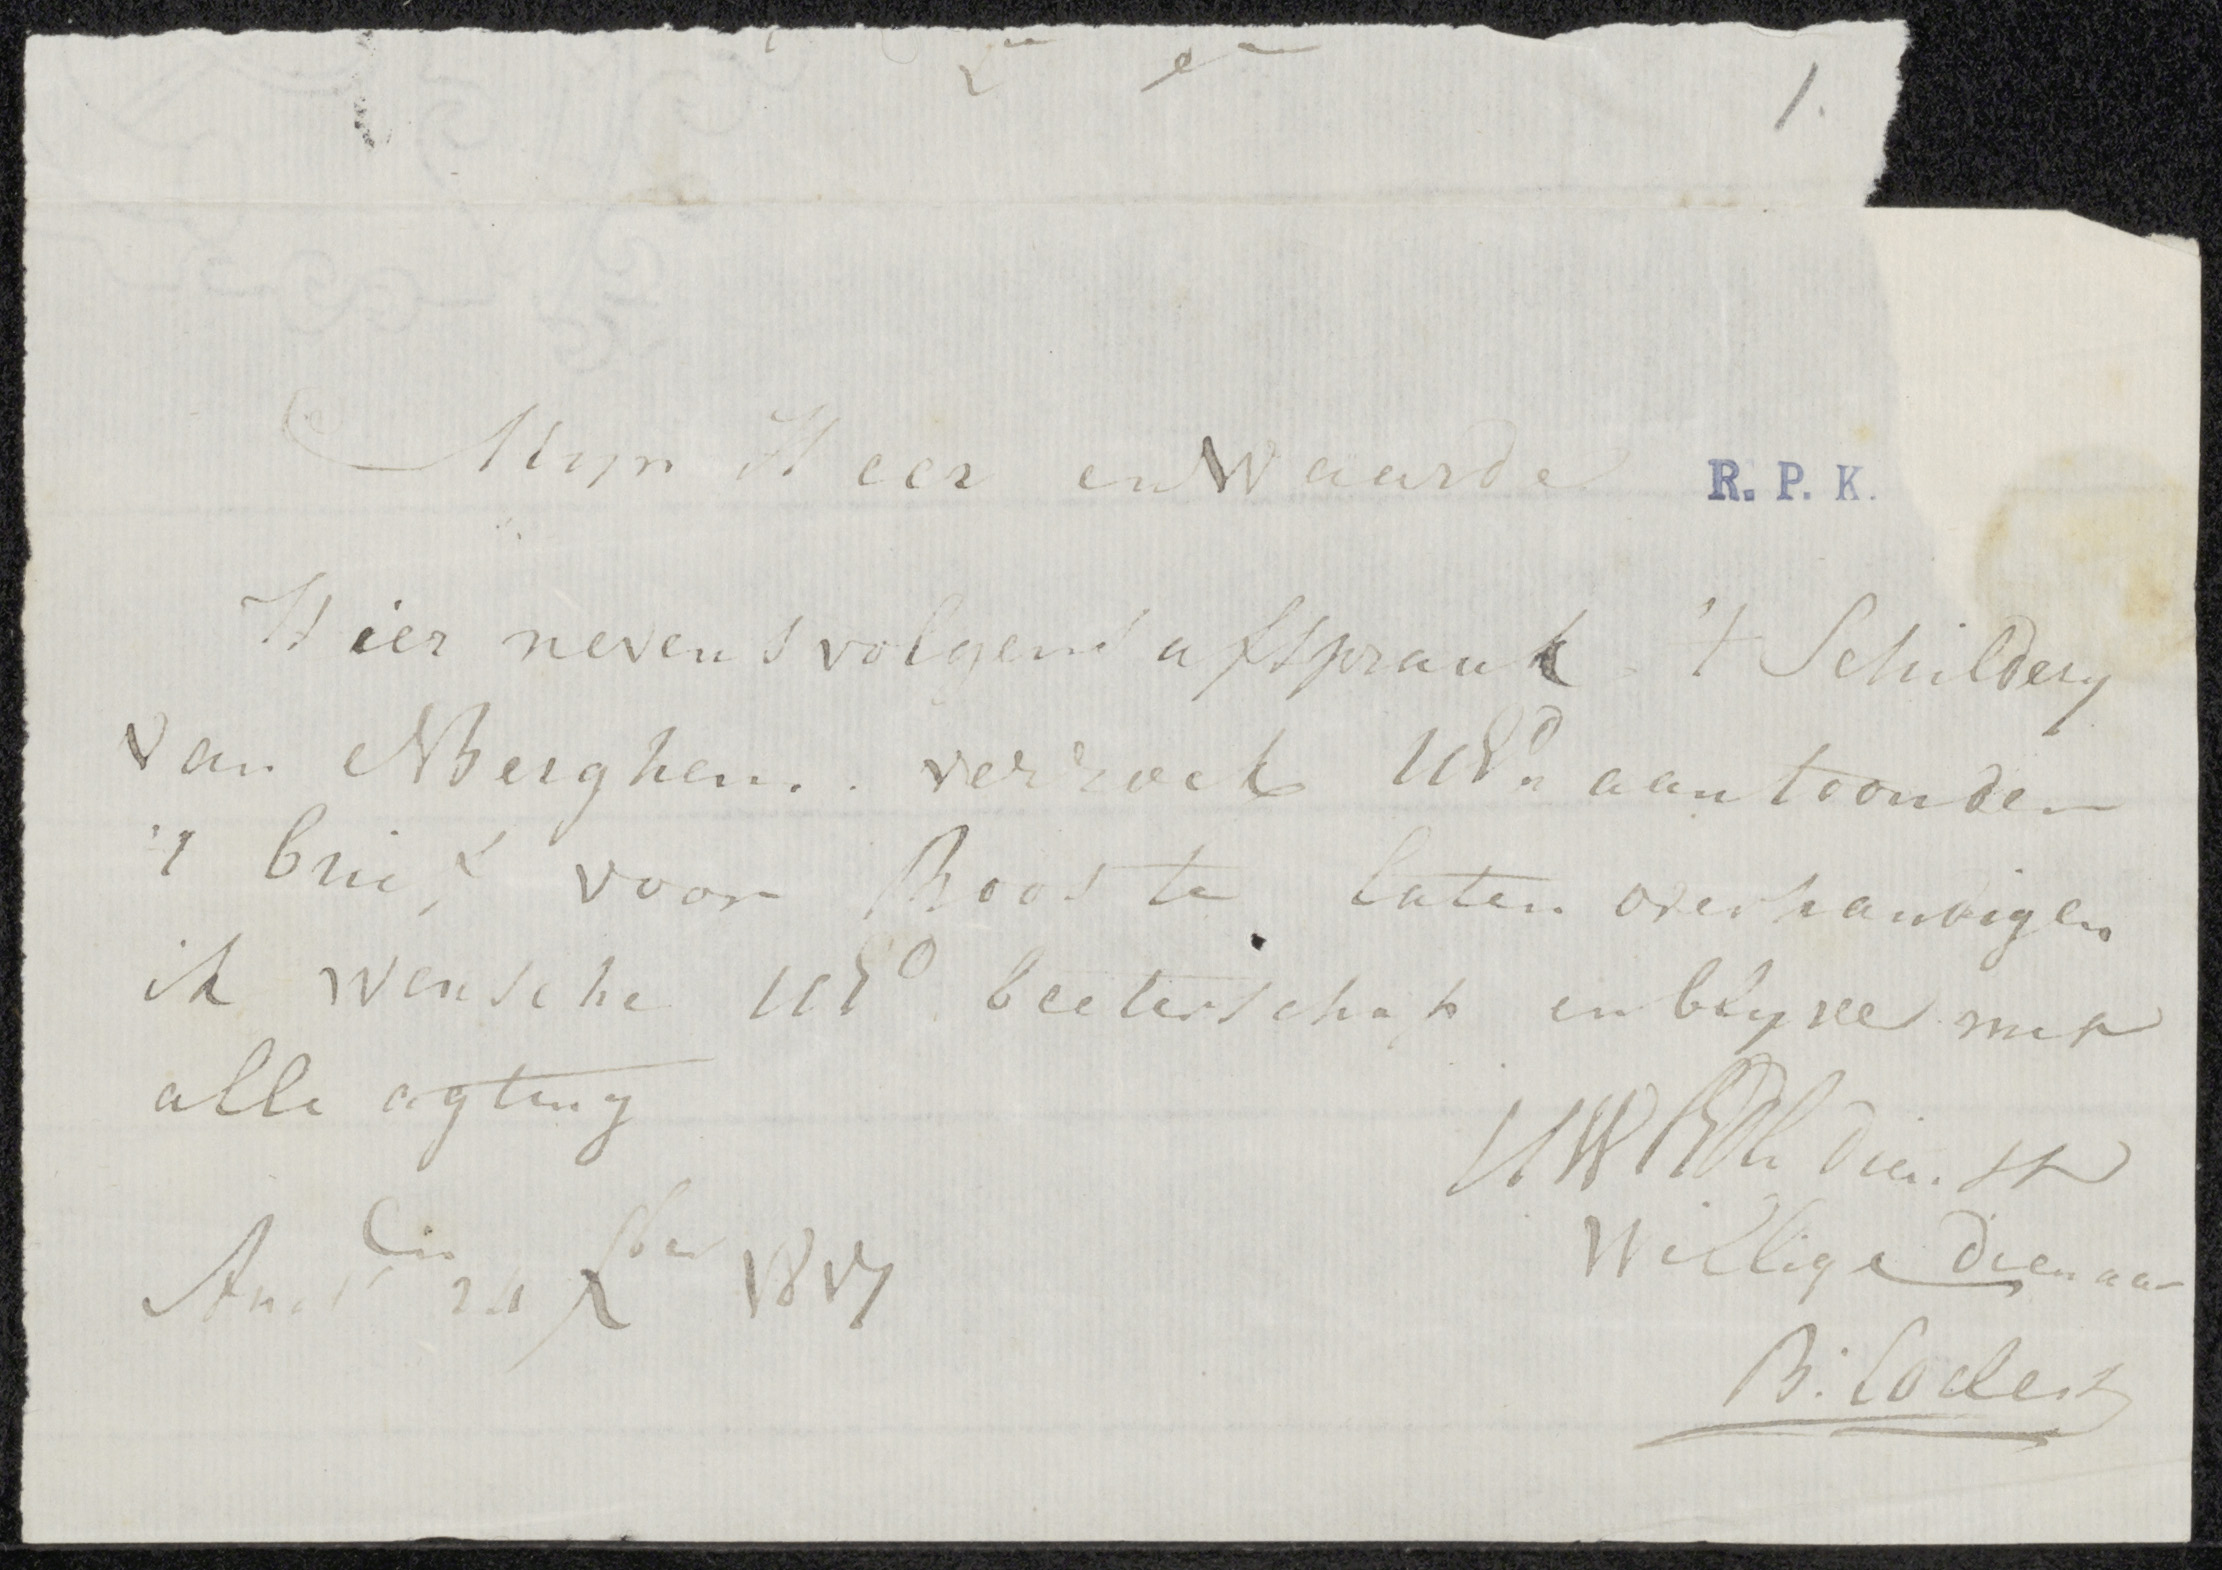 1.
Mijn Heer en Waarde
R. P. K.
Hier nevens volgens afspraak 't Schildery
van NBerghem. verzoek UEd aan toonder
't brief voor Roos te laten overhandigen
ik wensche UEd beeterschap en blyve met
alle agting
UWEd dienst
Willige dienaar
Amst 24 Xber 1817
B: Coclers